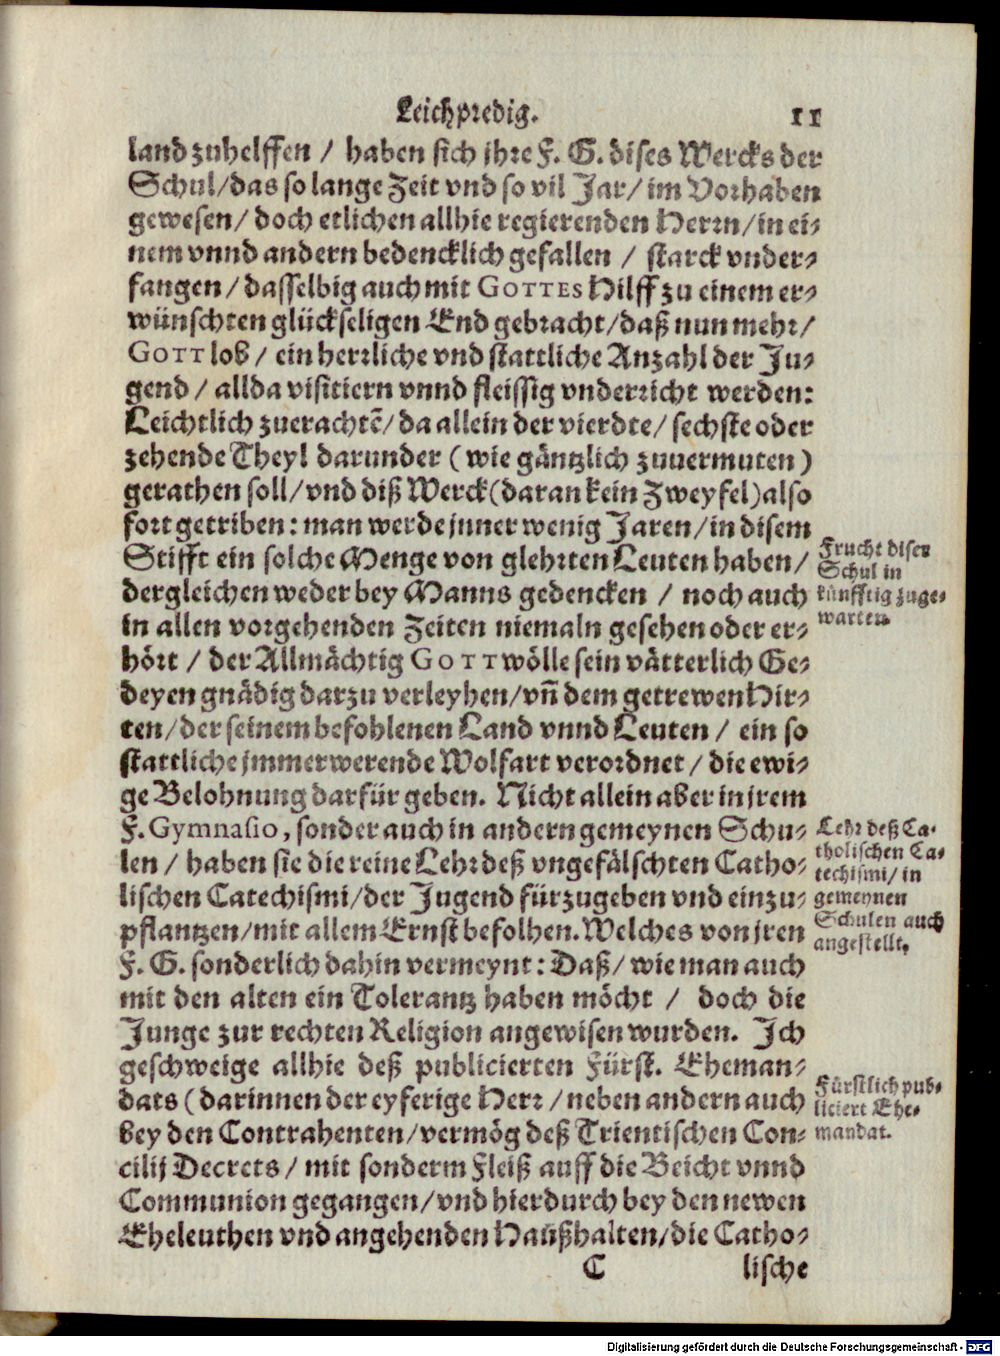 Leichpredig. 11
land zuhelffen / haben sich jhre F. G. dises Wercks der
Schul/das so lange Zeit vnd so vil Jar/im Vorhaben
gewesen/doch etlichen allhie regierenden Herrn/in ei-
nem vnnd andern bedencklich gefallen / starck vnder-
fangen/dasselbig auch mit GOTTES Hilff zu einem er-
wünschten glückseligen End gebracht/daß nun mehr/
GOTT lob / ein herrliche vnd stattliche Anzahl der Ju-
gend / allda visitiern vnnd fleissig vnderricht werden:
Leichtlich zuerachtē/da allein der vierdte/sechste oder
zehende Theyl darunder (wie gäntzlich zuuermuten)
gerathen soll/vnd diß Werck(daran kein Zweyfel)also
fort getriben: man werde jnner wenig Jaren/in disem
Stifft ein solche Menge von glehrten Leuten haben/
dergleichen weder bey Manns gedencken / noch auch
in allen vorgehenden Zeiten niemaln gesehen oder er-
hört / der Allmächtig GOTT wölle sein vätterlich Ge-
deyen gnädig darzu verleyhen/vñ dem getrewen Hir-
ten/der seinem befohlenen Land vnnd Leuten / ein so
stattliche jmmerwerende Wolfart verordnet / die ewi-
ge Belohnung darfür geben. Nicht allein aber in jrem
F. Gymnasio, sonder auch in andern gemeynen Schu-
len / haben sie die reine Lehr deß vngefälschten Catho-
lischen Catechismi/der Jugend fürzugeben vnd einzu-
pflantzen/mit allem Ernst befolhen. Welches von jren
F. G. sonderlich dahin vermeynt: Daß/wie man auch
mit den alten ein Tolerantz haben möcht / doch die
Junge zur rechten Religion angewisen wurden. Ich
geschweige allhie deß publicierten Fürst. Eheman-
dats (darinnen der eyferige Herr / neben andern auch
bey den Contrahenten/vermög deß Trientischen Con-
cilij Decrets / mit sonderm Fleiß auff die Beicht vnnd
Communion gegangen/vnd hierdurch bey den newen
Eheleuthen vnd angehenden Haußhalten/die Catho-
C lische
Frucht diser
Schul in
künfftig zuge-
warten.
Lehr deß Ca-
tholischen Ca-
techismi/in
gemeynen
Schulen auch
angestellt.
Fürstlich pub-
liciert Ehe-
mandat.
Digitalisierung gefördert durch die Deutsche Forschungsgemeinschaft - DFG